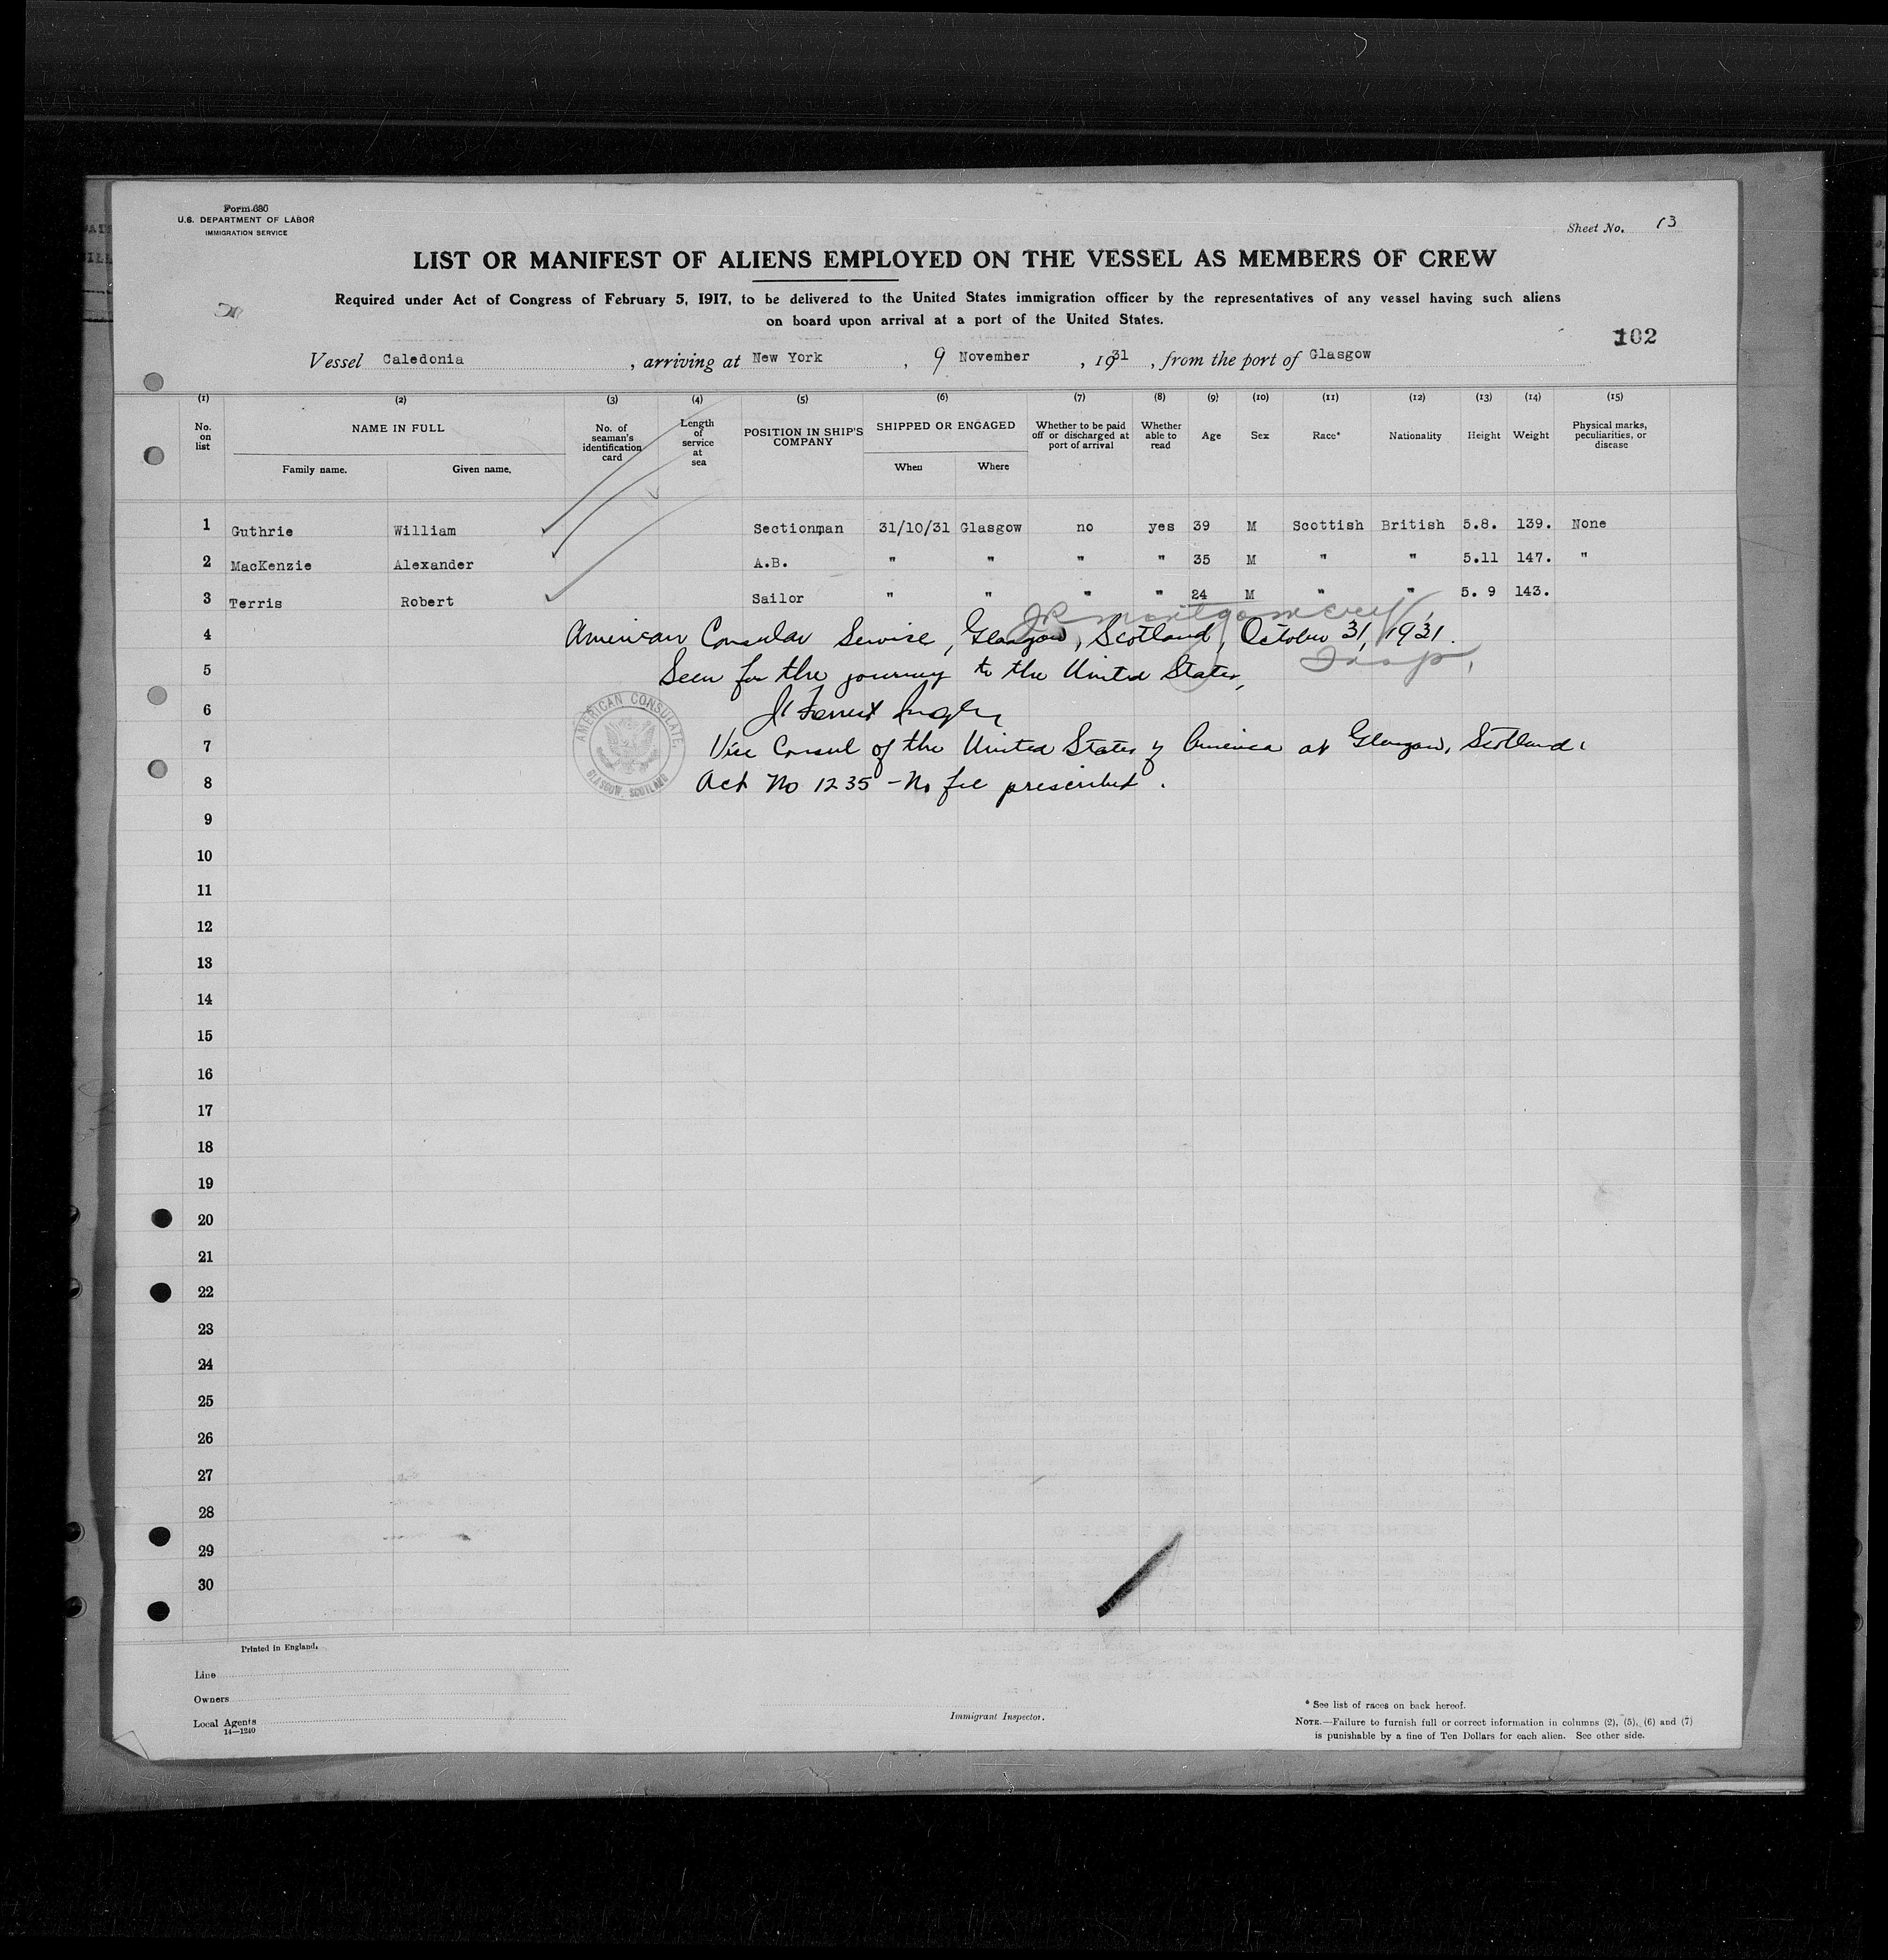 Form 680
U.S. DEPARTMENT OF LABOR
IMMIGRATION SERVICE
Sheet No. 13
LIST OR MANIFEST OF ALIENS EMPLOYED ON THE VESSEL AS MEMBERS OF CREW
Required under Act of Congress of February 5, 1917, to be delivered to the United States immigration officer by the representatives of any vessel having such aliens
on board upon arrival at a port of the United States.
102
Vessel Caledonia, arriving at New York, 9 November, 1931, from the port of Glasgow
(1) (2) (3) (4) (5) (6) (7) (8) (9) (10) (11) (12) (13) (14) (15)
No. on list NAME IN FULL Family name. Given name. No. of seaman's identification card Length of service at sea POSITION IN SHIP'S COMPANY SHIPPED OR ENGAGED When Where Whether to be paid off or discharged at port of arrival Whether able to read Age Sex Race* Nationality Height Weight Physical marks, peculiarities, or disease
1 Guthrie William Sectionman 31/10/31 Glasgow no yes 39 M Scottish British 5.8. 139. None
2 MacKenzie Alexander A.B. " " " " 35 M " " 5.11 147. "
3 Terris Robert Sailor " " " " 24 M " " 5. 9 143.
JR Montgomery
4 American Consular Service, Glasgow, Scotland, October 31, 1931.
Insp.
5 Seen for the journey to the United States,
6
AMERICAN CONSULATE.
GLASGOW, SCOTLAND
7 Vice Consul of the United States of America at Glasgow, Scotland.
8 Act No 1235 - No fee prescribed.
9
10
11
12
13
14
15
16
17
18
19
20
21
22
23
24
25
26
27
28
29
30
Printed in England.
Line
Owners
Local Agents
14—1240
Immigrant Inspector.
* See list of races on back hereof.
NOTE.—Failure to furnish full or correct information in columns (2), (5), (6) and (7)
is punishable by a fine of Ten Dollars for each alien. See other side.